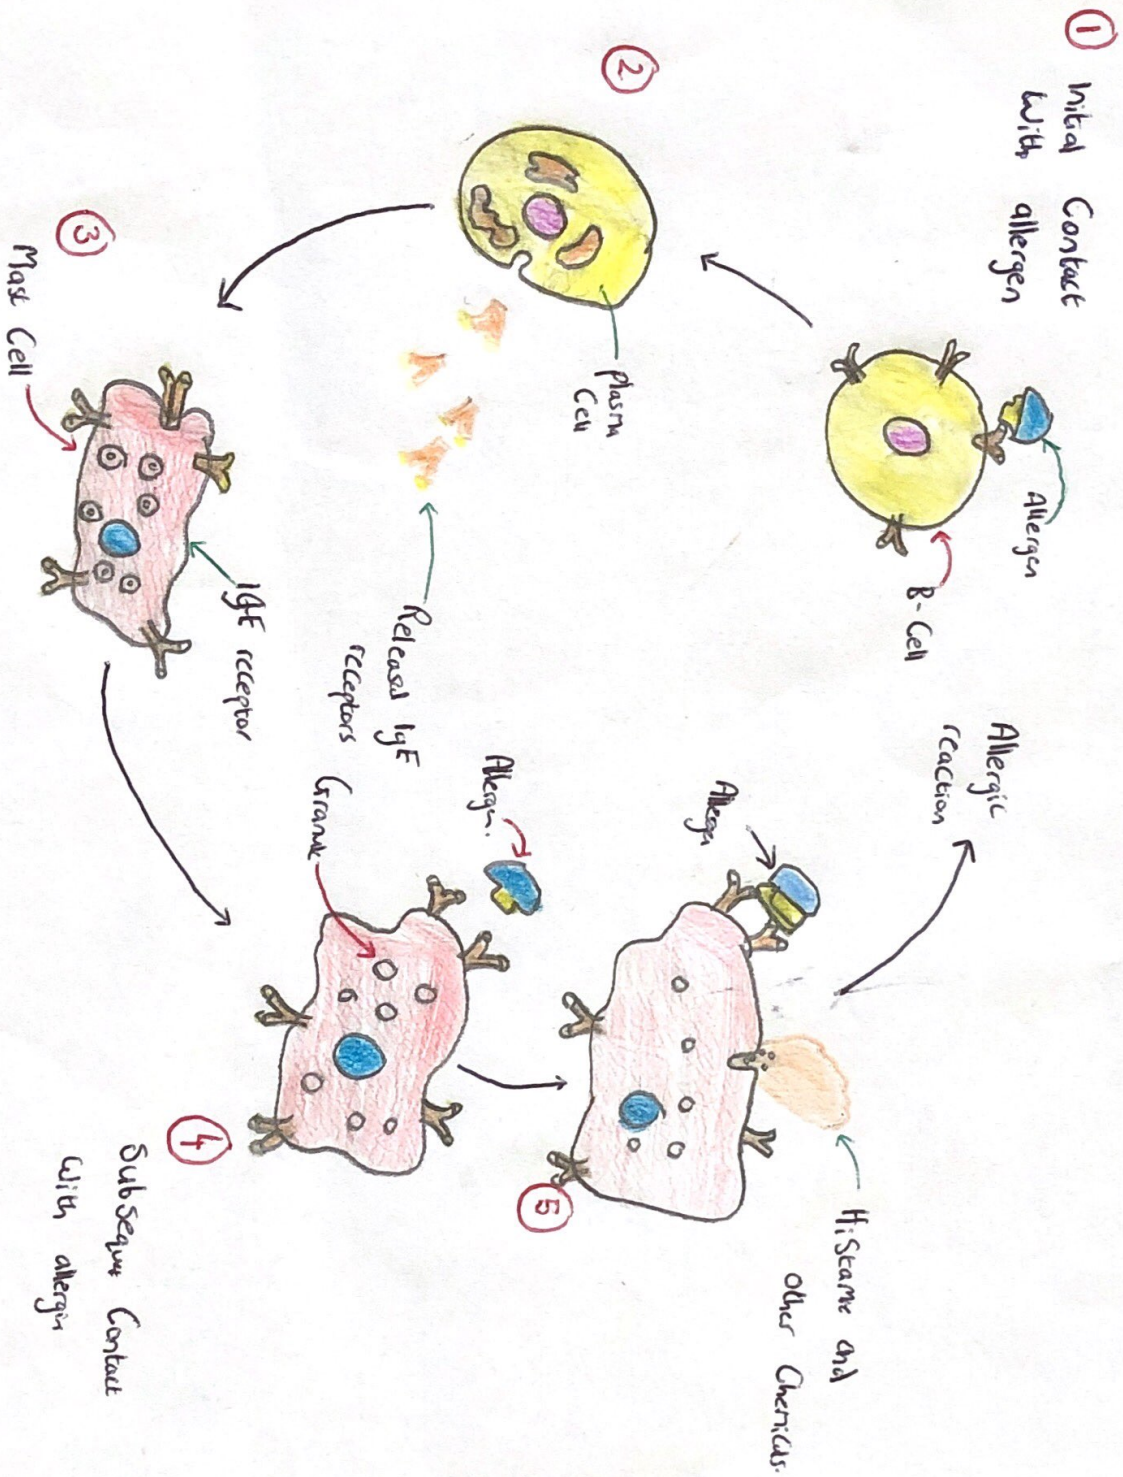 1 Initial Contact
With allergen
Allergen
B-Cell
2
plasma
Cell
Released IgE
receptors
3
Mast Cell
IgE receptor
4
Subsequnt Contact
With allergen
Granule
Allergen.
5
Allergen
Histamine and
other Chemicals.
Allergic
reaction